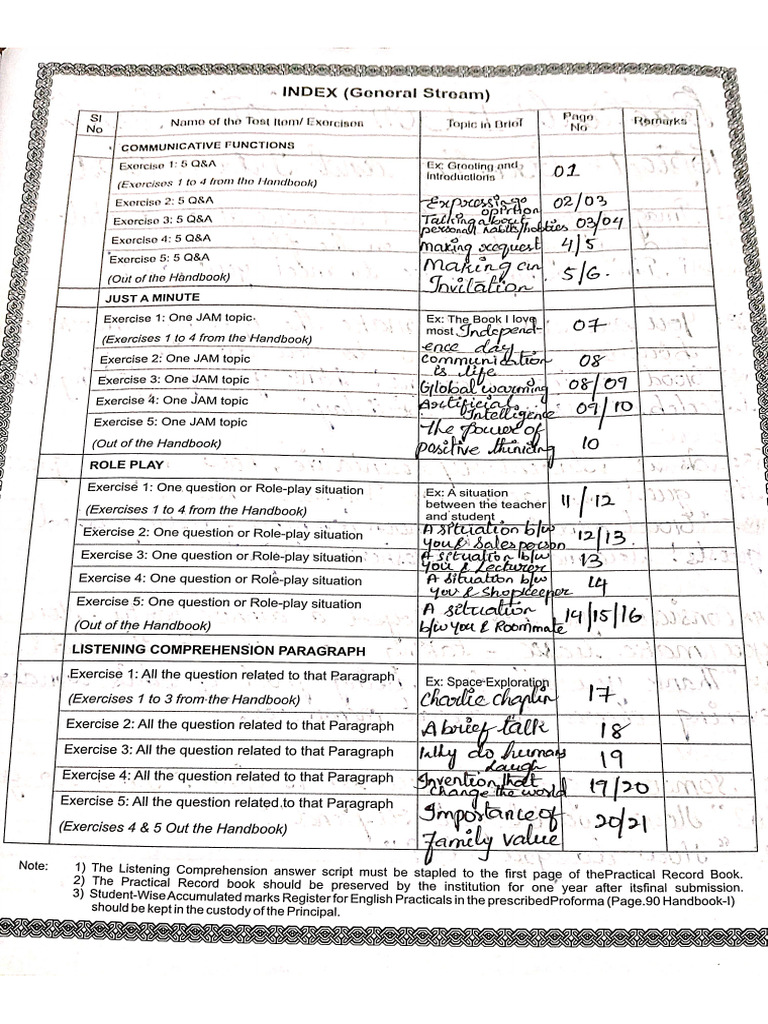 INDEX (General Stream)
Sl No | Name of the Test Item/ Exercises | Topic in Brief | Page No | Remarks
COMMUNICATIVE FUNCTIONS
Exercise 1: 5 Q&A | Ex: Greeting and | 01
(Exercises 1 to 4 from the Handbook) | Introductions
Exercise 2: 5 Q&A | Expressing opinion | 02/03
Exercise 3: 5 Q&A | Talking about personal habits/hobbies | 03/04
Exercise 4: 5 Q&A | Making request | 4/5
Exercise 5: 5 Q&A | Making an | 5/6.
(Out of the Handbook) | Invitation
JUST A MINUTE
Exercise 1: One JAM topic | Ex: The Book I love | 07
(Exercises 1 to 4 from the Handbook) | most Independ-
ence day
Exercise 2: One JAM topic | communication is life | 08
Exercise 3: One JAM topic | Global warming | 08/09
Exercise 4: One JAM topic | Artificial Intelligence | 09/10
Exercise 5: One JAM topic | the power of
(Out of the Handbook) | positive thinking | 10
ROLE PLAY
Exercise 1: One question or Role-play situation | Ex: A situation | 11/12
(Exercises 1 to 4 from the Handbook) | between the teacher
and student
Exercise 2: One question or Role-play situation | A situation b/w you & Salesperson | 12/13
Exercise 3: One question or Role-play situation | A situation b/w you & Lecturer | 13
Exercise 4: One question or Role-play situation | A situation b/w you & Shopkeeper | 14
Exercise 5: One question or Role-play situation | A situation | 14/15/16
(Out of the Handbook) | b/w you & Roommate
LISTENING COMPREHENSION PARAGRAPH
Exercise 1: All the question related to that Paragraph | Ex: Space-Exploration | 17
(Exercises 1 to 3 from the Handbook) | Charlie chaplin
Exercise 2: All the question related to that Paragraph | A brief talk | 18
Exercise 3: All the question related to that Paragraph | Why do humans Laugh | 19
Exercise 4: All the question related to that Paragraph | Invention that change the world | 19/20
Exercise 5: All the question related.to that Paragraph | Importance of | 20/21
(Exercises 4 & 5 Out the Handbook) | Family value
Note: 1) The Listening Comprehension answer script must be stapled to the first page of thePractical Record Book.
2) The Practical Record book should be preserved by the institution for one year after itsfinal submission.
3) Student-Wise Accumulated marks Register for English Practicals in the prescribedProforma (Page.90 Handbook-I)
should be kept in the custody of the Principal.